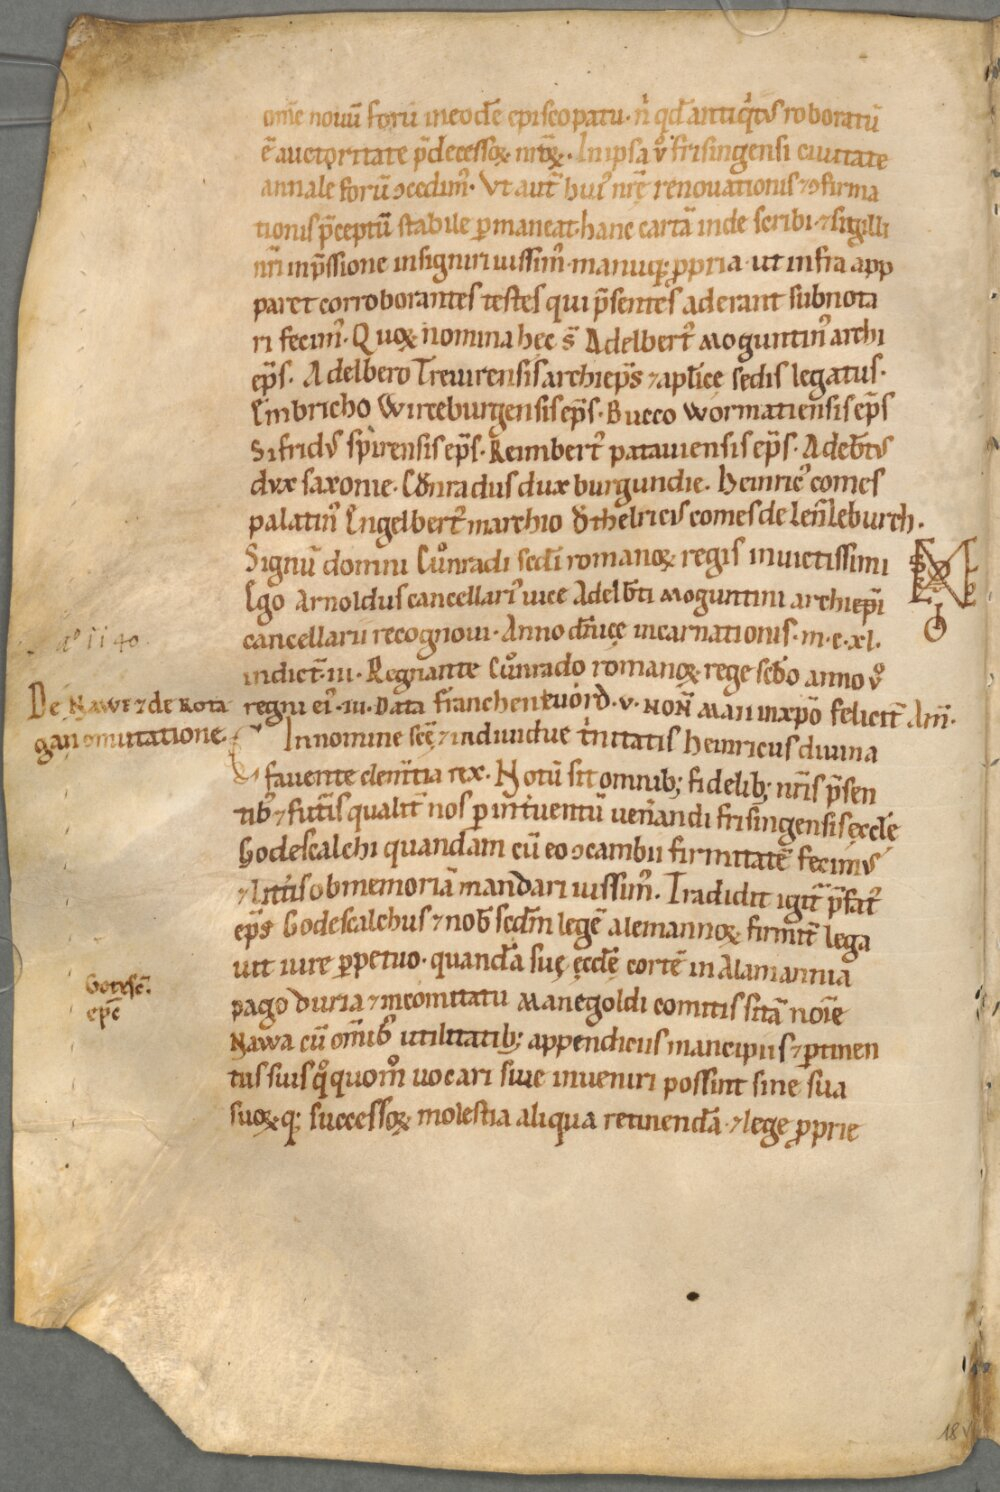 om̄e nouū forū in eodē episcopatu · n̄ qđ antiq̇tꝰ roboratū
ē auctoritate p̄decessoꝝ nr̄oꝝ · In ipsa ů frisingensi ciuitate
annale forū ↄcedimꝰ · Vt aut̄ huiꝰ nr̄ę renouationis ⁊ ↄfirma
tionis p̄ceptū stabile ꝑmaneat · hanc cartā inde scribi · ⁊ sigilli
nr̄i inp̄ssione insigniri iussimꝰ · manuq; ꝓpria · ut infra app
paret corroborantes testes qui p̄sentes aderant subnota
ri fecimꝰ · Quoꝝ nomina hec s̄ Adelbertꝰ Moguntinꝰ archi
ep̄s · Adelbero Treuirensis archiep̄s ⁊ apl̄ice sedis legatus ·
Embricho Wirceburgensis ep̄s · Bucco wormatiensis ep̄s
Sifridꝰ spirensis ep̄s · Reimbertꝰ patauiensis ep̄s · Adelb̄tꝰ
dux saxonie · Cǒnradus dux burgundie · Heinricꝰ comes
palatinꝰ Engelbertꝰ marchio Ǒthelricus comes de Len̄leburch ·
Signū domni Cůnradi sedi romanoꝝ regis inuictissimi
Ego Arnoldus cancellariꝰ uice Adelb̄ti Moguntini archiep̄i
cancellarii recognoui · Anno dn̄icę incarnationis · m · c · xl ·
aº 1140 ·
indict̄ · iii · Regnante Cůnrado romanoꝝ rege scdo anno ů
De Nawe ⁊ de Rota
regni eiꝰ · iii · Data francheneuord · v · Non̄ Maii in xp̄o felicit̄ Am̄ ·
gan ↄmutatione
In nomine scę ⁊ indiuidue trinitatis Heinricus diuina
fauente clem̄tia rex · Notū sit omnib; fidelib; nr̄is p̄sen
tibꝰ ⁊ futis qualit̄ nos ꝑ int̄uentū uen̄andi frisingensis ęccl̄ę
Godescalchi quandam cū eo ↄcambii firmitatē fecimꝰ
⁊ litt̄is ob memoriā mandari iussimꝰ · Tradidit igit̄ p̄fatꝰ
ep̄s Godescalchus ⁊ nob̄ scđm legē alemannoꝝ firmit̄ lega
uit iure ꝑpetuo · quandā suę ęccl̄ę cortē in Alamannia
Gotesc̄ ·
pago duria ⁊ in comitatu Manegoldi comitis sitā noīe
ep̄c
Nawa cū om̄ibꝰ utilitatib; appendiciis mancipiis ⁊ ꝑtinen
tiis suis q̊quom̊ uocari siue inueniri possint sine sua
suoꝝ q; successoꝝ molestia aliqua retinendā · ⁊ lege ꝓprie
18v